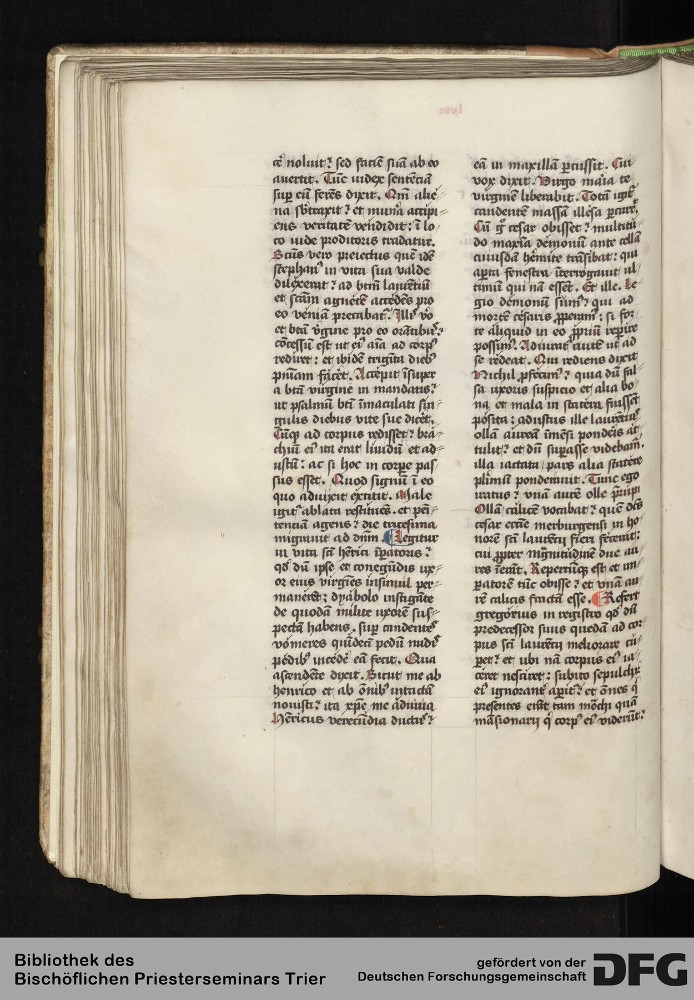 tē noluit? sed faciē suā ab eo
auertit. Tūc iudex sentētiā
sup eū ferēs dixit. Qm̄ alie-
na sbtraxit? et mun̄a accipi-
ens veritatē vendidit: ī lo-
co iude proditoris tradatur.
Sc̄us vero preiectus quē idē
stephan⁹ in vita sua valde
dilexerat? ad btm̄ laurētiū
et sc̄am agnetē accedēs pro
eo veniā precabat᷑. Ill' v̊o
et btā v̓gine pro eo orātib⁹?
cōcessū est ut ei⁹ aīa ad corp⁹
rediret: et ibidē trigīta dieb⁹
pn̄iam fac̄et. Accepit īsuper
a btā virgine in mandatis?
ut psalmū bti īmaculati sin-
gulis diebus vite sue dic̄et.
Cūq̄ ad corpus redisset? bra-
chiū ei⁹ ita erat liuidū et ad-
ustū: ac si hoc in corpe pas-
sus esset. Quod signū ī eo
quo aduixit extitit. Male
igit᷑ ablata restituēs. et peni-
tenciam agens? die tricesima
migrauit ad dn̄m ¶Legitur
in vita sc̄i hērici īpatoris?
qd̓ dū ipse et conegūdis ux-
or eius virgīes insimul per-
manerēt: dyabolo instigāte
de quodā milite uxorē sus-
pectā habens. sup candentes
vomeres quīdecī pedū nudis
pedib⁹ incedē eā fecit. Qua
ascendēte dixit. Sicut me ab
henrico et ab om̄ib⁹ intactā
nouisti? ita xpē me adiuua
Hēricus verecūdia ductus?
eā in maxillā p̄cussit. Cui
vox dixit. Virgo maria te
virginē liberabit. Totā igit᷑
candentē massā illesa p̄curr̄.
Cū g̊ cesar obisset? multitu-
do maxīa demonū ante cellā
cuiusdā h̓mite trāsibat: qui
apta fenestra īterrogauit ul-
timū qui nā esset. Et ille. Le-
gio demonū sum⁹? qui ad
mortē cesaris p̄peram⁹: si for-
te aliquid in eo p̄priū reperire
possim⁹. Adiurat᷑ autē ut ad
se redeat. Qui rediens dixit
Nichil p̄fecim⁹? quia dū fal-
sa uxoris suspicio et alia bo-
na et mala in statera fuissēt
posita: adustus ille laurēti⁹
ollā aureā īmēsi pondēis at-
tulit? et dū supasse videbam̄.
illa iactata/ pars alia statere
pl̄imū ponderauit. Tunc ego
iratus? vnā aurē olle p̄ripi
Ollā calicē vocabat? quē dc̄s
cesar ecc̄ae merburgensi in ho-
norē sc̄i laurētij fieri fecerat:
cui p̄pter mg̅nitudinē due au-
res īerāt. Repertūq̄ est et im-
patorē tūc obisse? et vnā au-
rē calicis fractā esse. ¶Refert
gregorius in registro qd̓ dū
predecessor suus quedā ad cor-
pus sc̄i laurētij meliorare cu-
peret? et ubi nā corpus ei⁹ ia-
ceret nesciret: subito sepulchr̄
ei⁹ ignorant᷑ apit᷑? et om̄es q̄
presentes erāt tam mōchi quā
māsionarij q̄ corp⁹ ei⁹ viderūt?
Bibliothek des
Bischöflichen Priesterseminars Trier
gefördert von der
Deutschen Forschungsgemeinschaft
DFG